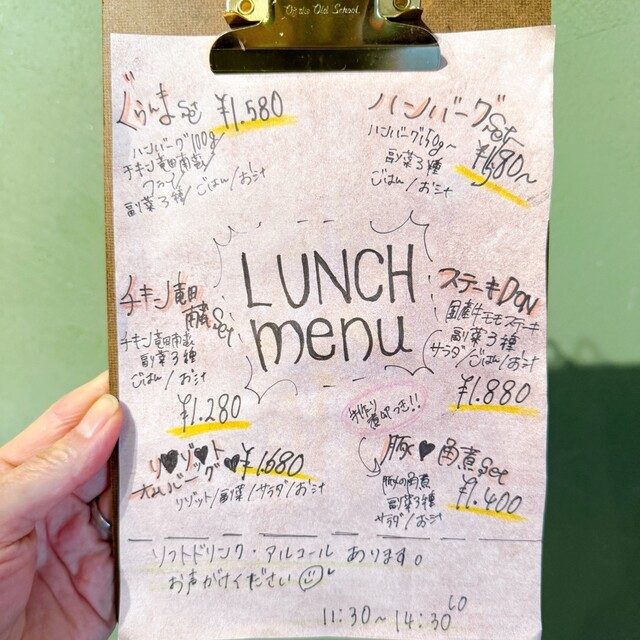 Of the Old School.
ぐらんまset ¥1.580
ハンバーグ100g
チキン竜田南蛮
副菜3種/ごはん/お汁
ハンバーグ
Set
ハンバーグ150g〜
副菜3種
ごはん/お汁
LUNCH
menu
チキン竜田
南蛮Set
チキン竜田南蛮
副菜3種
ごはん/お汁
¥1.280
ステーキDON
国産牛モモステーキ
副菜3種
サラダ/ごはん/お汁
¥1.880
リ♥ゾ♥ット
バーグ♥ ¥1.680
リゾット/副菜/サラダ/お汁
つき!!
豚♥角煮set
豚の角煮
副菜3種
サラダ/お汁
¥1.400
ソフトドリンク・アルコールあります。
お声がけください
11:30〜14:30 LO